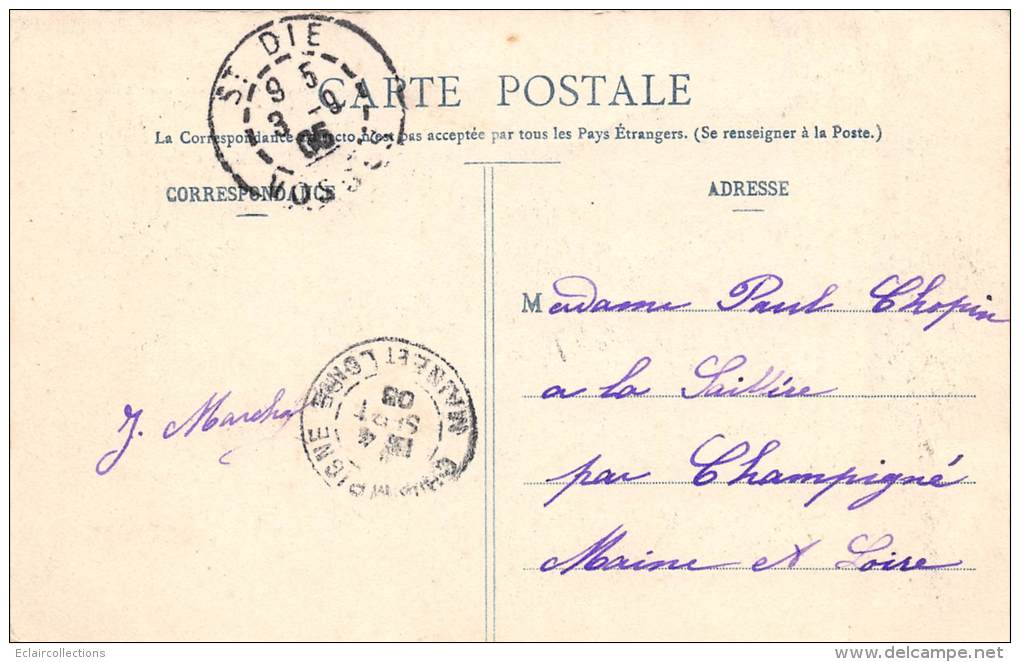 ST DIE
9 5
3 -9
05
VOSGES
CARTE POSTALE
La Correspondance au recto n'est pas acceptée par tous les Pays Étrangers. (Se renseigner à la Poste.)
CORRESPONDANCE
ADRESSE
Madame Paul Chopin
a la
par Champigné
Maine et Loire
J. Marchal
CHAMPIGNE MAINE ET LOIRE
4
SEPT
05
Eclaircollections
www.delcampe.net